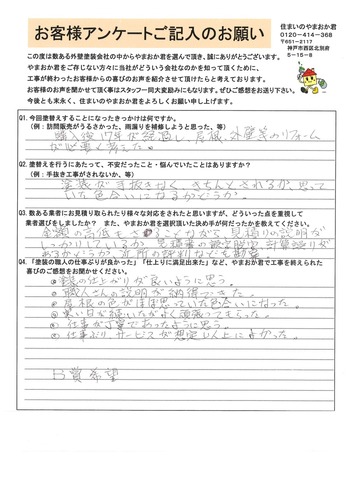 お客様アンケートご記入のお願い
住まいのやまおか君
0120-414-368
〒651-2117
神戸市西区北別府
5-15-8
この度は数ある外壁塗装会社の中からやまおか君を選んで頂き、誠にありがとうございます。
やまおか君をご存じない方々に当社がどういう会社なのかを知って頂くために、
工事が終わったお客様からの喜びのお声を紹介させて頂けたらと考えております。
お客様のお声を聞かせて頂く事はスタッフ一同大変励みにもなります。ぜひご感想をお送り下さい。
今後とも末永く、やまおか君をよろしくお願い申し上げます。
Q1. 今回塗替えすることになったきっかけは何ですか。
(例:訪問販売がうるさかった、雨漏りを補修しようと思った、等)
購入後17年が経過し、屋根、外壁等のリフォーム
が必要と考えた。
Q2. 塗替えを行うにあたって、不安だったこと・悩んでいたことはありますか?
(例:手抜き工事がされないか、等)
塗装が手抜きなく、きちんとされるか、思って
いた色合いになるかどうか。
Q3. 数ある業者にお見積り取られたり様々な対応をされたと思いますが、どういった点を重視して
業者選びをしましたか? また、やまおか君を選択頂いた決め手が何だったかを教えてください。
金額の高低もさることながら、見積りの説明が
しっかりしているか、見積書の設定数字、計算誤りが
あるかどうか、近所の評判なども勘案。
Q4. 「塗装の職人の仕事ぶりが良かった」「仕上りに満足出来た」など、やまおか君で工事を終えられた
喜びのご感想をお聞かせください。
・全般の仕上りが良いように思う。
・職人さんの説明が納得できた。
・屋根の色がほぼ思っていた色合いになった。
・暑い日が続いたがよく頑張ってもらった。
・仕事が丁寧であったように思う。
・仕事ぶり、サービスが想定以上によかった。
B賞希望